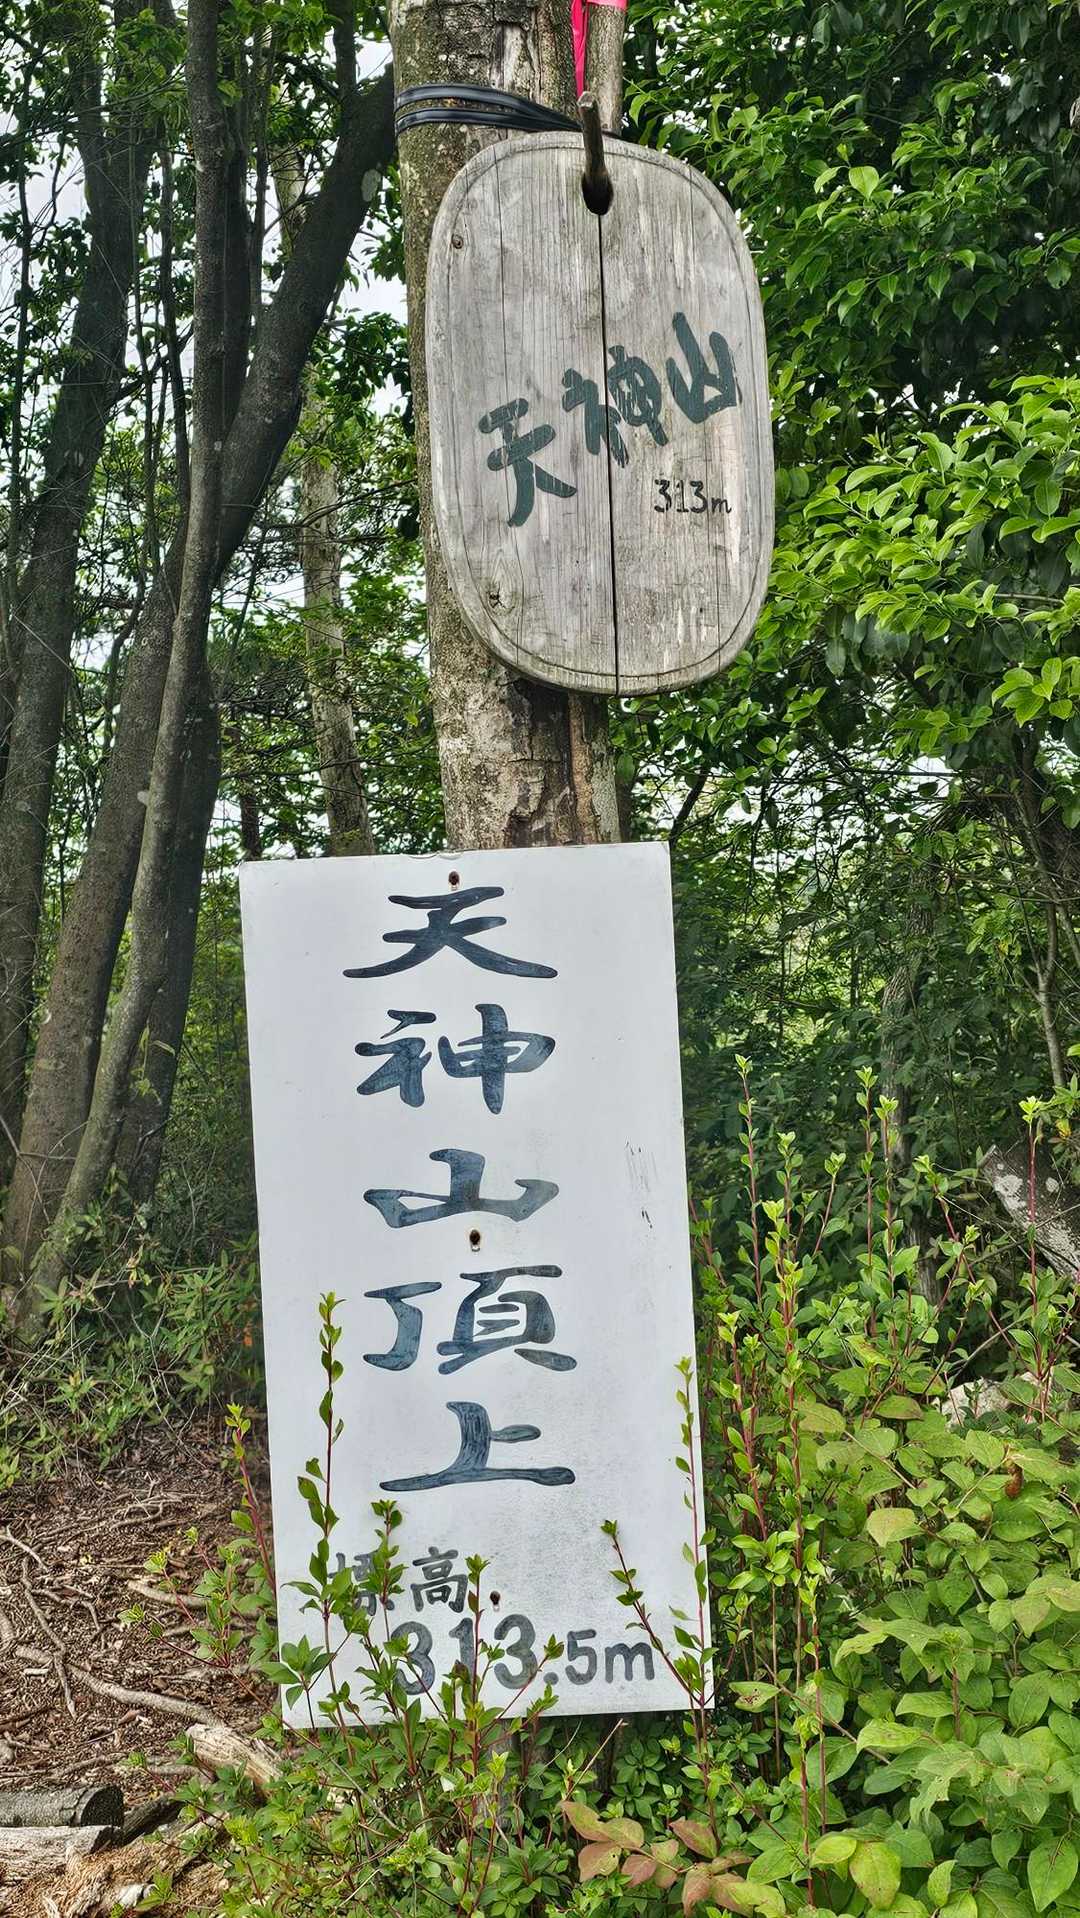 天神山
313m
天神山頂上
標高
313.5m